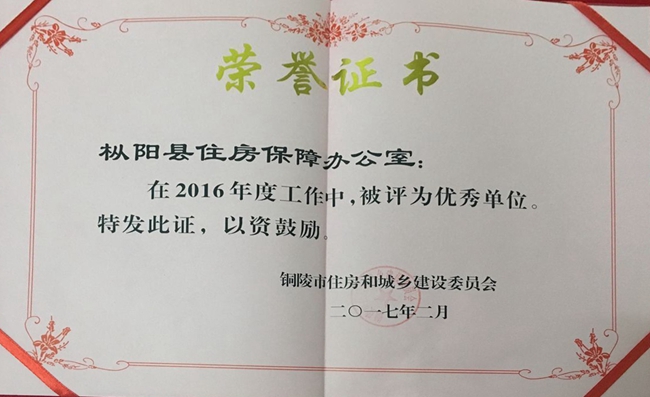 荣誉证书
枞阳县住房保障办公室：
在2016年度工作中，被评为优秀单位。
特发此证，以资鼓励。
铜陵市住房和城乡建设委员会
二〇一七年二月